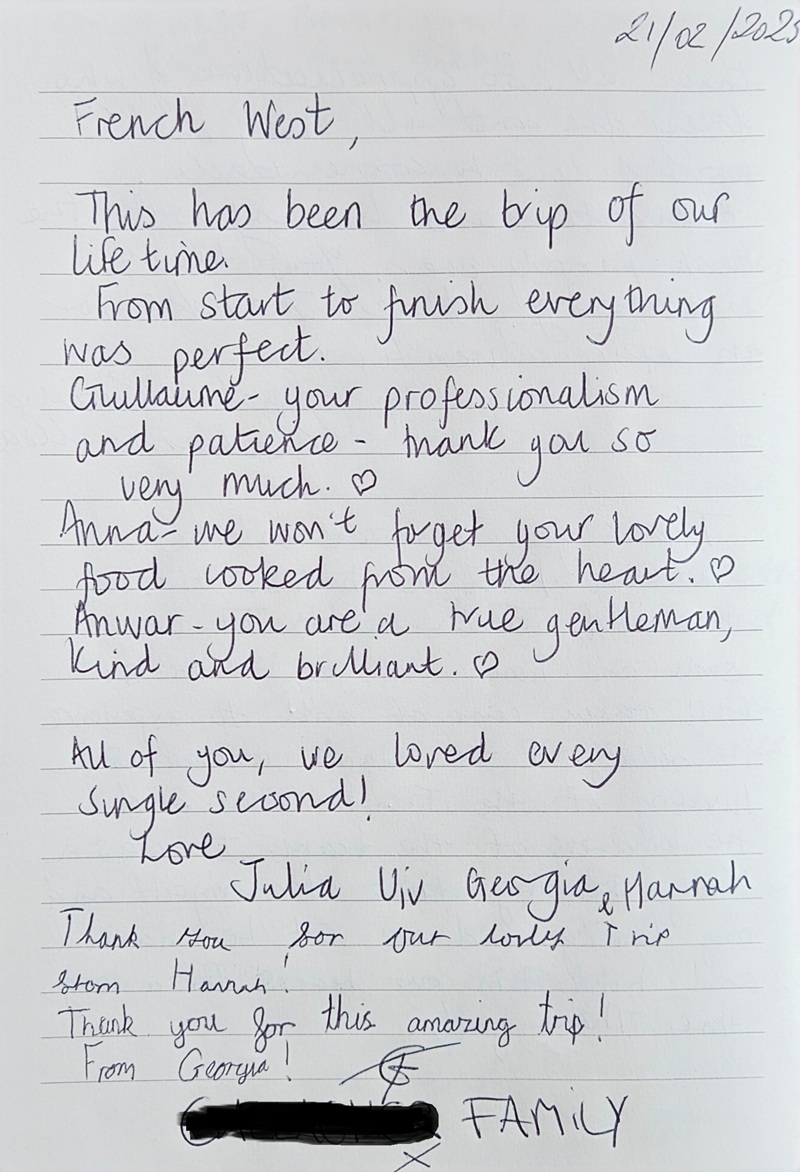 21/02/2025
French West,
This has been the trip of our
life time.
From start to finish everything
was perfect.
Guillaume - your professionalism
and patience - thank you so
very much. ♡
Anna - we won't forget your lovely
food cooked from the heart. ♡
Anwar - you are a true gentleman,
kind and brilliant. ♡
All of you, we loved every
single second!
Love
Julia Viv Georgia & Hannah
Thank you for our lovely Trip
from Hannah!
Thank you for this amazing trip!
From Georgia!
FAMILY
X